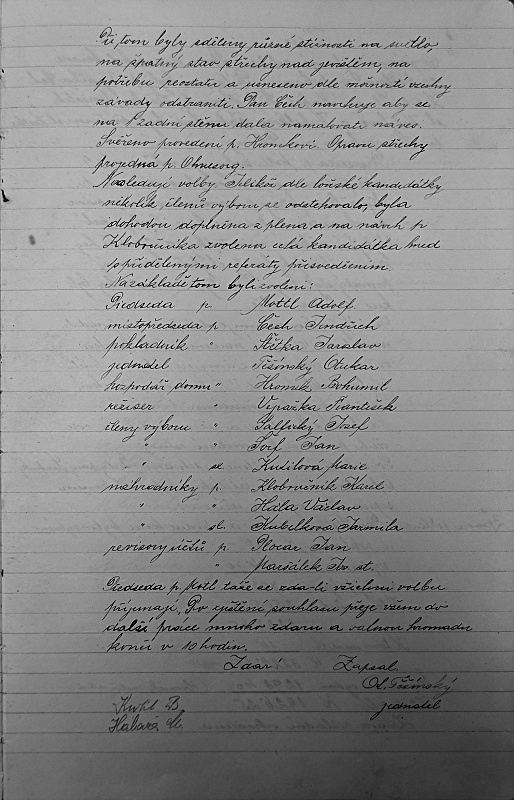 Při tom byly sděleny různé stížnosti na světlo,
na špatný stav střechy nad jevištěm, na
potřebu reostatu a usneseno dle možností všechny
závady odstraniti. Pan Čech navrhuje aby se
na zadní stěnu dala namalovati náves.
Svěřeno provedení p. Hromkovi. Opravu střechy
projedná p. Ohnesorg.
Následují volby. Jelikož dle loňské kandidátky
několik členů výboru se odstěhovalo, byla
dohodou doplněna z plena, a na návrh p.
Klobočníka zvolena celá kandidátka hned
s přidělenými referáty přisvědčením.
Na základě tom byli zvoleni:
Předseda p. Mottl Adolf.
místopředseda p. Čech Jindřich
pokladník " Stětka Jaroslav
jednatel Těšínský Otakar
hospodář domu " Hromek Bohumil
režiser " František
členy výboru " Josef
" " Šorf Jan
" sl. Kudilová Marie
náhradníky p. Klobočník Karel
" " Hála Václav
" sl. Kubelková Jarmila
revisory účtů p. Rocar Jan
" Maršálek st.
Předseda p. Motl táže se zda-li všichni volbu
přijímají. Po zjištění souhlasu přeje všem do
další práce mnoho zdaru a valnou hromadu
končí v 10 hodin.
Zdar! Zapsal
Ot. Těšínský
jednatel